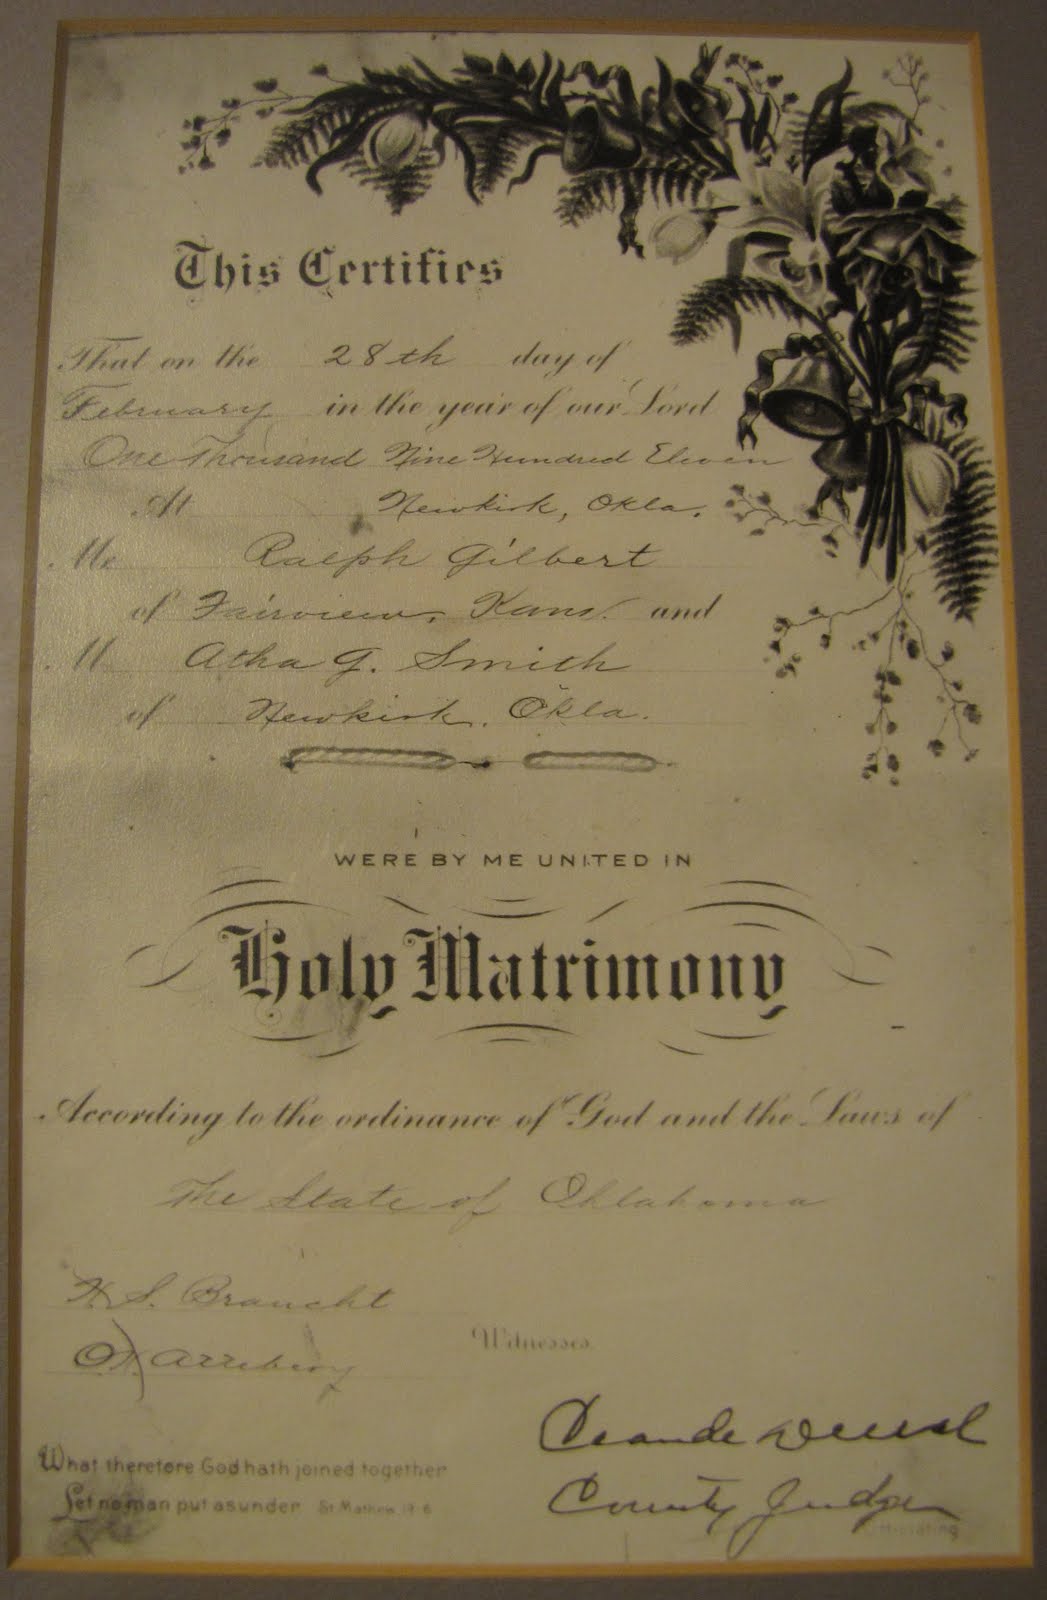 This Certifies
That on the 28th day of
February in the year of our Lord
One Thousand Nine Hundred Eleven
At Newkirk, Okla.
Mr Ralph Gilbert
of Fairview, Kans. and
M Atha G. Smith
of Newkirk, Okla.
WERE BY ME UNITED IN
Holy Matrimony
According to the ordinance of God and the Laws of
The State of Oklahoma
H.S. Braucht
Witnesses.
Claude
What therefore God hath joined together
Let no man put asunder St Mathew 19.6
County Judge
Officiating